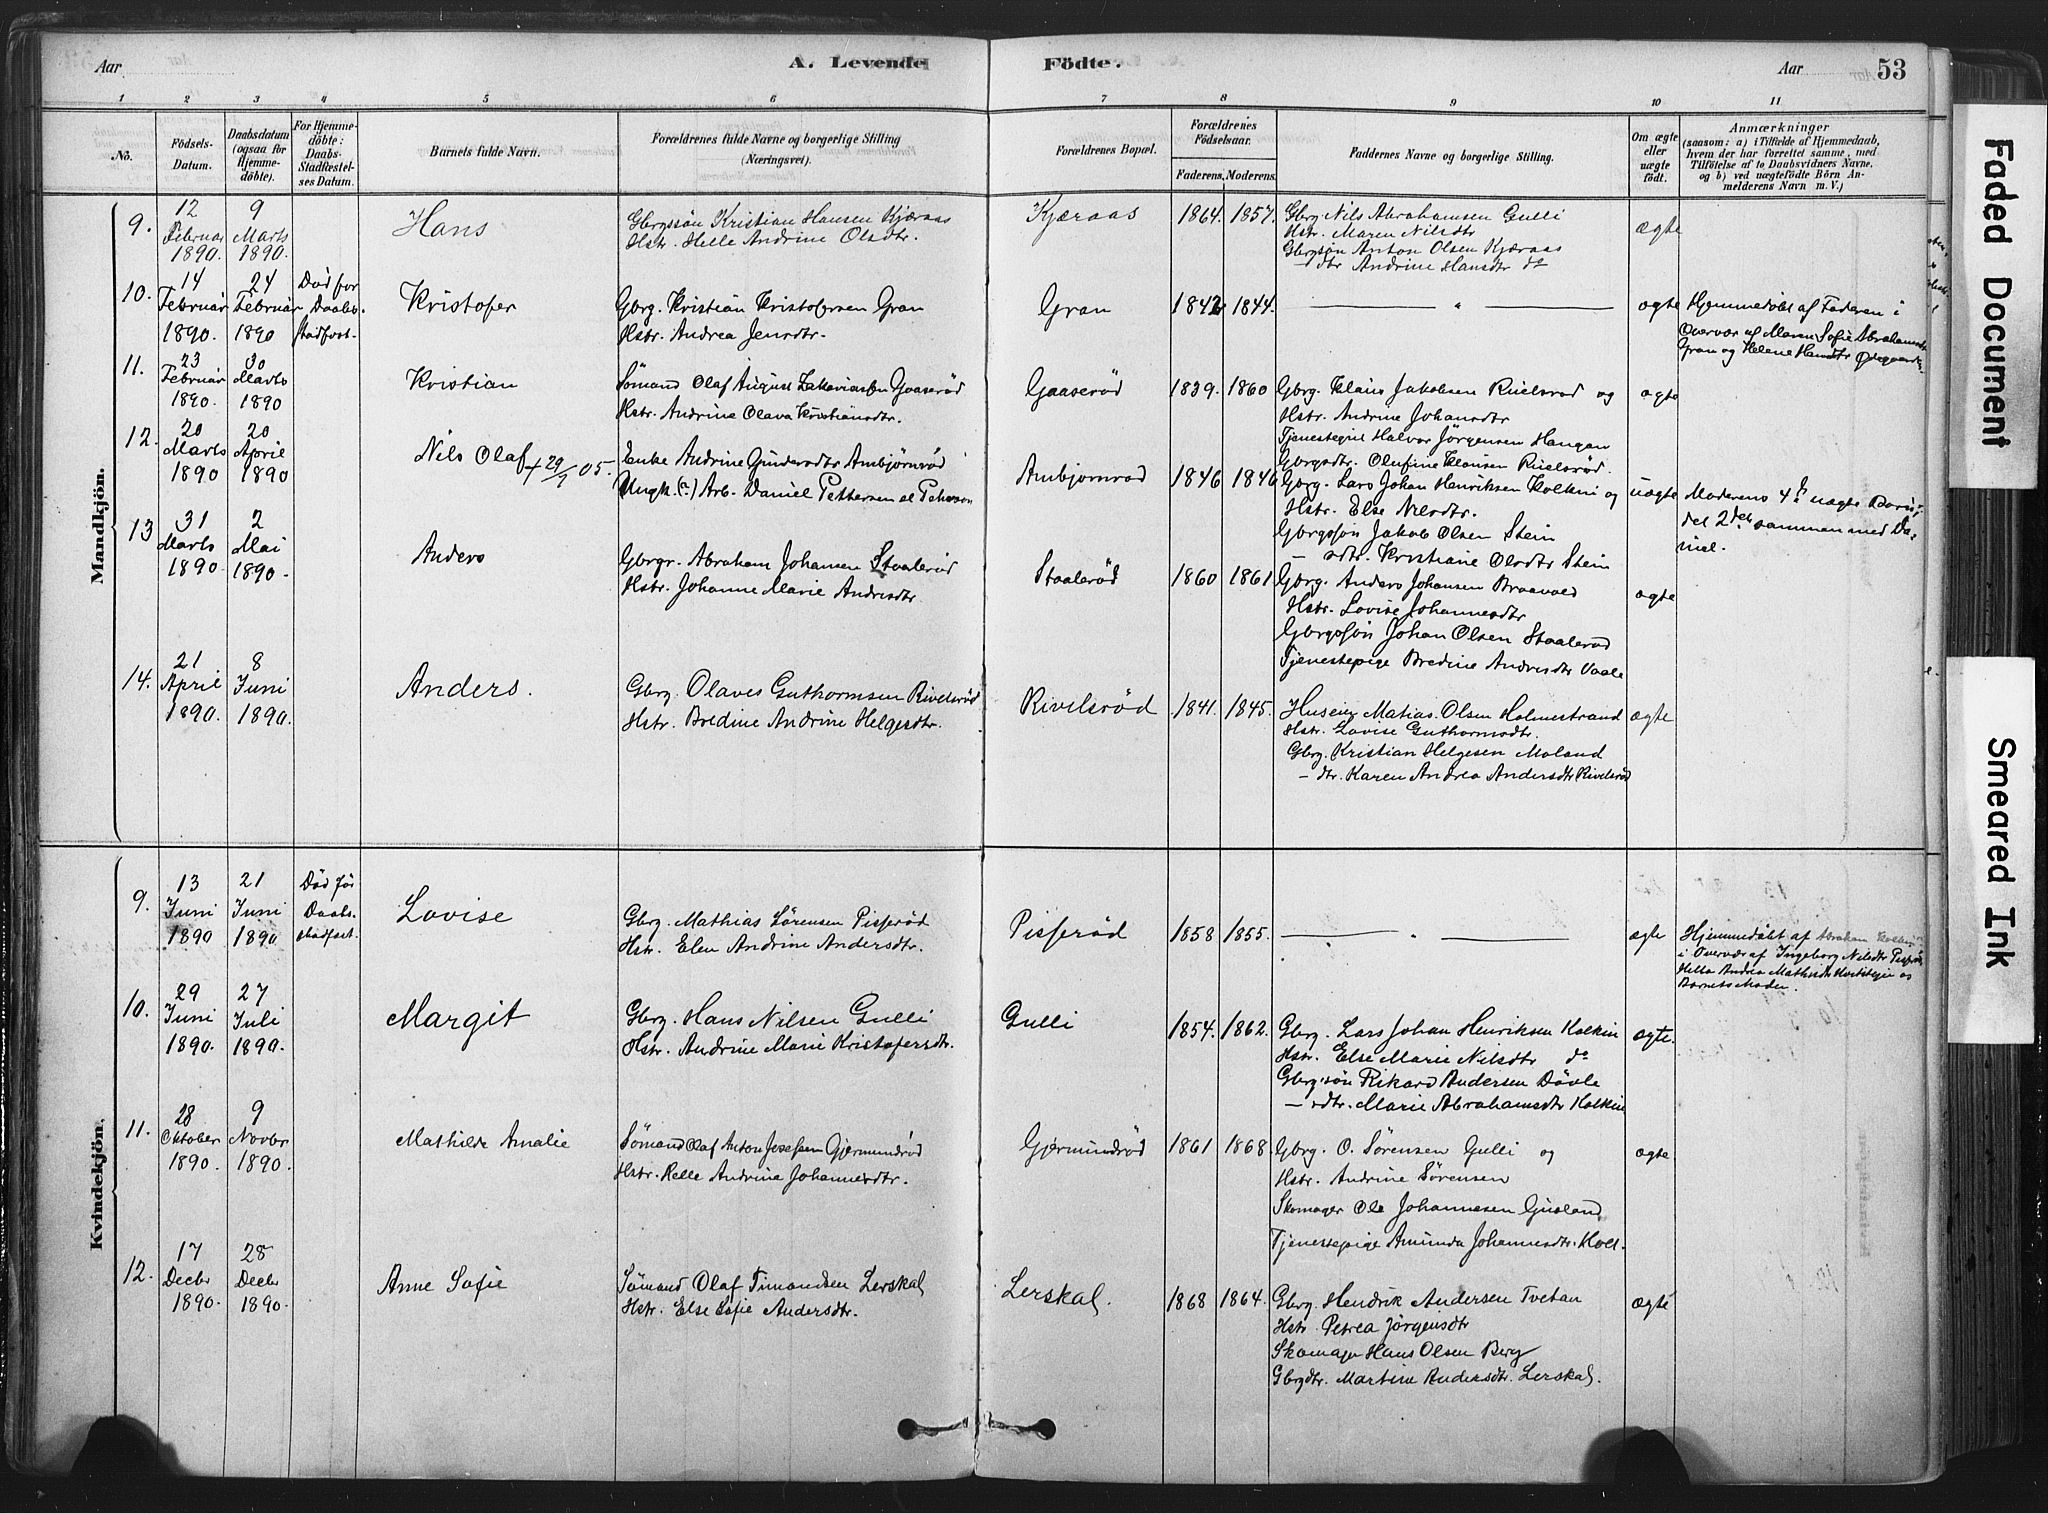 Aar
A. Levende
Födte.
Aar
53
1 2 3 4 5 6 7 8 9 10 11
No.
Födsels-
Datum.
Daabsdatum
(ogsaa for
Hjemme-
döbte).
For Hjemme-
döbte:
Daabs-
Stadfæstel-
ses Datum.
Barnets fulde Navn.
Forældrenes fulde Navne og borgerlige Stilling
(Næringsvei).
Forældrenes Bopæl.
Forældrenes
Födselsaar.
Faderens. Moderens.
Faddernes Navne og borgerlige Stilling.
Om ægte
eller
uægte
födt.
Anmærkninger
(saasom: a) i Tilfælde af Hjemmedaab,
hvem der har forrettet samme, med
Tilföielse af to Daabsvidners Navne,
og b) ved uægtefödte Börn An-
melderens Navn m. V.)
Mandkjön.
9.
12
Februar
1890.
9
Marts
1890.
Hans
Gbrgssön Kristian Hansen Kjæraas
Hstr. Helle Andrine Olsdtr.
Kjæraas
1864. 1857.
Gbrg Nils Abrahamsen Gulli
Hstr. Maren Nilsdtr
Gbrgsøn Anton Olsen Kjæraas
— dtr Andrine Hansdtr do
ægte
10.
14
Februar
1890.
24
Februar
1890
Död for
Daabs-
stadfæst-
Kristofer
Gbrg. Kristian Kristofersen Gran
Hstr. Andrea Jensdtr.
Gran
1842 1844.
— " —
ægte
Hjemmedöbt af Faderen i
Overvær af Maren Sofie Abrahamsdtr
Gran og Helene Hansdtr
11.
23
Februar
1890.
30
Marts
1890
Kristian
Sømand Olaf August Zakariassen Gaaserød
Hstr. Andrine Olava Kristiansdtr.
Gaaserød
1839. 1860
Gbrg. Klaus Jakobsen Ruelsrød og
Hstr. Andrine Johansdtr
Tjenestegut Halvor Jørgensen Haugan
Gbrgsdtr. Olufine Klausen Ruelsrød.
ægte
12.
20
Marts
1890
20
April
1890
Nils Olaf + 29/1 05.
Enke Andrine Gundersdtr Ambjørnrød
Ungk. (?) Arb. Daniel Pettersen el Pehrson
Ambjørnrød
1846 1846
Gbrg. Lars Johan Henriksen Kolkin og
Hstr. Else Nilsdtr.
Gbrgssøn Jakob Olsen Stein
— sdtr. Kristiane Olsdtr Stein
uægte
Moderens 4de uægte Barn,
det 2det sammen med Da-
niel.
13
31
Marts
1890.
2
Mai
1890.
Anders
Gbrgr. Abraham Johansen Staalerød
Hstr. Johanne Marie Andersdtr
Staalerød
1860 1861
Gbrg. Anders Johansen Braavold
Hstr. Lovise Johannesdtr
Gbrgssøn Johan Olsen Staalerød
Tjenestepige Bredine Andersdtr Vaale
ægte
14.
21
April
1890.
8
Juni
1890.
Anders.
Gbrg. Olaves Guthormsen Rivelsrød
Hstr. Bredine Andrine Helgesdtr.
Rivelsrød
1841. 1845.
Huseier Matias Olsen Holmestrand
Hstr. Lovise Guthormsdtr.
Gbrg. Kristian Helgesen Moland
— dtr. Karen Andrea Andersdtr Rivelsrød
ægte
Kvindekjön.
9.
13
Juni
1890
21
Juni
1890
Död för
Daabs-
stadfæst.
Lovise
Gbrg. Mathias Sörensen Pisserød
Hstr. Elen Andrine Andersdtr.
Pisserød
1858 1855.
— " —
ægte
Hjemmedöbt af Abraham Kolkin
i Overvær af Ingeborg Nilsdtr Pisserød
Helle Andrea Mathisdtr og
Barnets Moder.
10.
29
Juni
1890.
27
Juli
1890.
Margit
Gbrg. Hans Nilsen Gulli
Hstr. Andrine Marie Kristofersdtr.
Gulli
1854. 1862.
Gbrg. Lars Johan Henriksen Kolkin
Hstr. Else Marie Nilsdtr do
Gbrg.sön Rikard Andersen Dövle
— sdtr. Marie Abrahamsdtr Kolkin
ægte.
11.
28
Oktober
1890.
9
Novbr
1890.
Mathilde Amalie
Sømand Olaf Anton Josefsen Gjermundrød
Hstr. Helle Andrine Johannesdtr.
Gjermundrød
1861 1868.
Gbrg. O. Sørensen Gulli og
Hstr. Andrine Sørensen
Skomager Ole Johannesen Gusland
Tjenestepige Amunda Johannesdtr. Holt.
ægte
12.
17
Decbr
1890.
28
Decbr
1890.
Anne Sofie
Sømand Olaf Timandsen Lerskal
Hstr. Else Sofie Andersdtr.
Lerskal.
1868 1864.
Gbrg. Hendrik Andersen Tvetan
Hstr. Petrea Jørgensdtr
Skomager Hans Olsen Berg
Gbrgdtr. Martine Andersdtr. Lerskal.
ægte
Faded Document
Smeared Ink